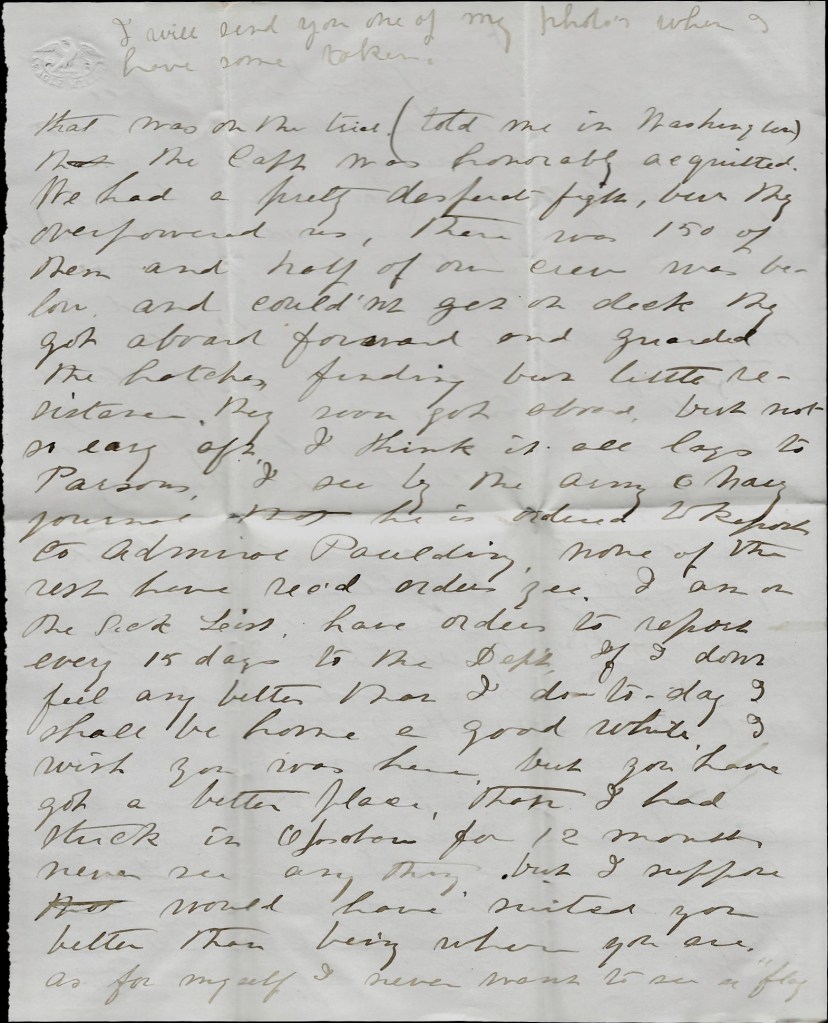 I will send you one of my photo's when I
have some taken.
that was on the trial (told me in Washington)
that the Capt was honorably acquitted.
We had a pretty desperate fight, but they
overpowered us, There was 150 of
them and half of our crew was be-
low, and could'nt get on deck they
got aboard forward and guarded
the hatches finding but little re-
sistance they soon got aboard, but not
so easy aft, I think it all lays to
Parsons, I see by the Army & Navy
journal that he is ordered to Report
to Admiral Paulding, none of the
rest have rec'd orders yet. I am on
the Sick List, have orders to report
every 15 days to the Dept, If I don't
feel any better than I do to-day I
shall be home a good while, I
wish you was here, but you have
got a better place, than I had
stuck in for 12 months
never see any thing but I suppose
that would have suited you
better than being where you are.
as for myself I never want to see a "flag